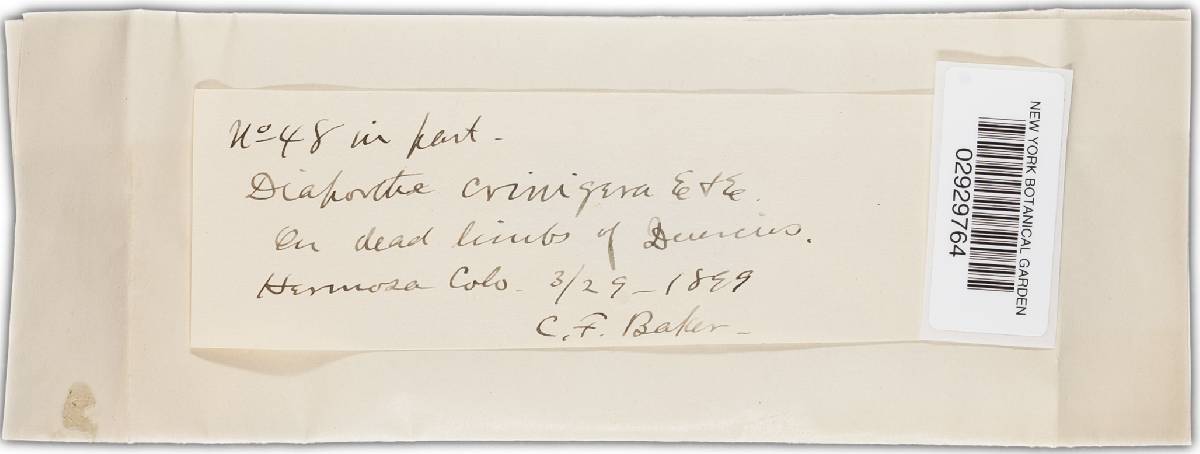 No 48 in part -
Diaporthe crinigera E & E.
On dead limbs of Quercus.
Hermosa Colo - 3/29 - 1899
C. F. Baker -
NEW YORK BOTANICAL GARDEN
02929764